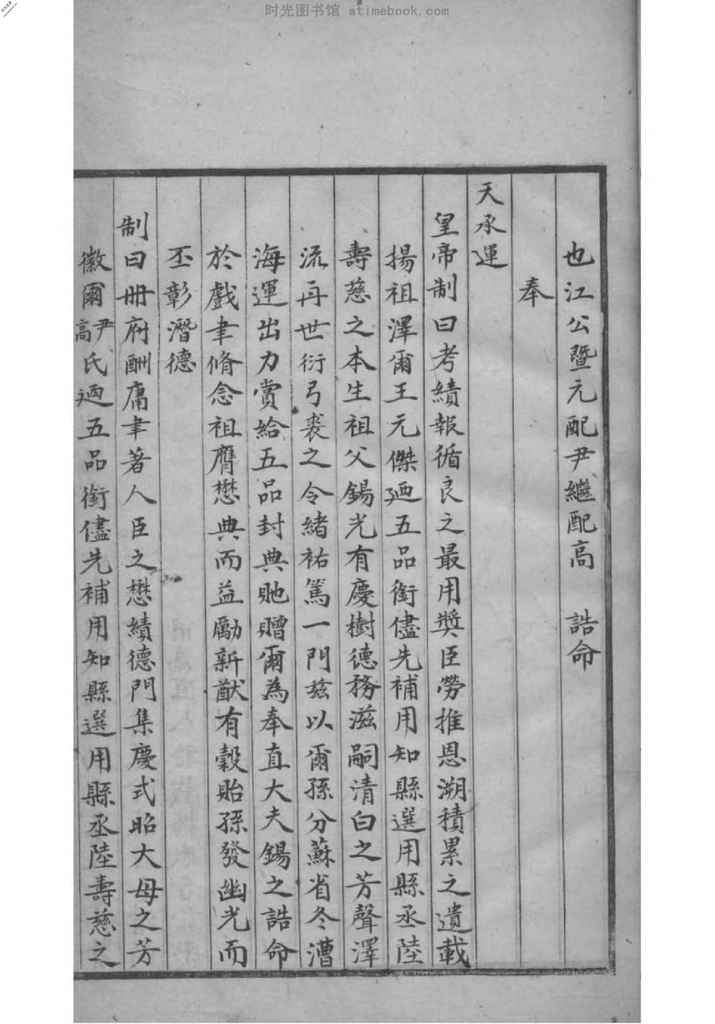 时光图书馆 atimebook.com
也江公暨元配尹繼配高　誥命
奉
天承運
皇帝制曰考績報循良之最用奬臣勞推恩溯積累之遺載
揚祖澤爾王元傑廼五品銜儘先補用知縣選用縣丞陸
壽慈之本生祖父錫光有慶樹德務滋嗣清白之芳聲澤
流再世衍弓裘之令緒祐篤一門兹以爾孫分蘇省冬漕
海運出力賞給五品封典貤贈爾為奉直大夫錫之誥命
於戲聿脩念祖膺懋典而益勵新猷有穀貽孫發幽光而
丕彰潛德
制曰冊府酬庸聿著人臣之懋績德門集慶式昭大母之芳
徽爾尹高氏廼五品銜儘先補用知縣選用縣丞陸壽慈之